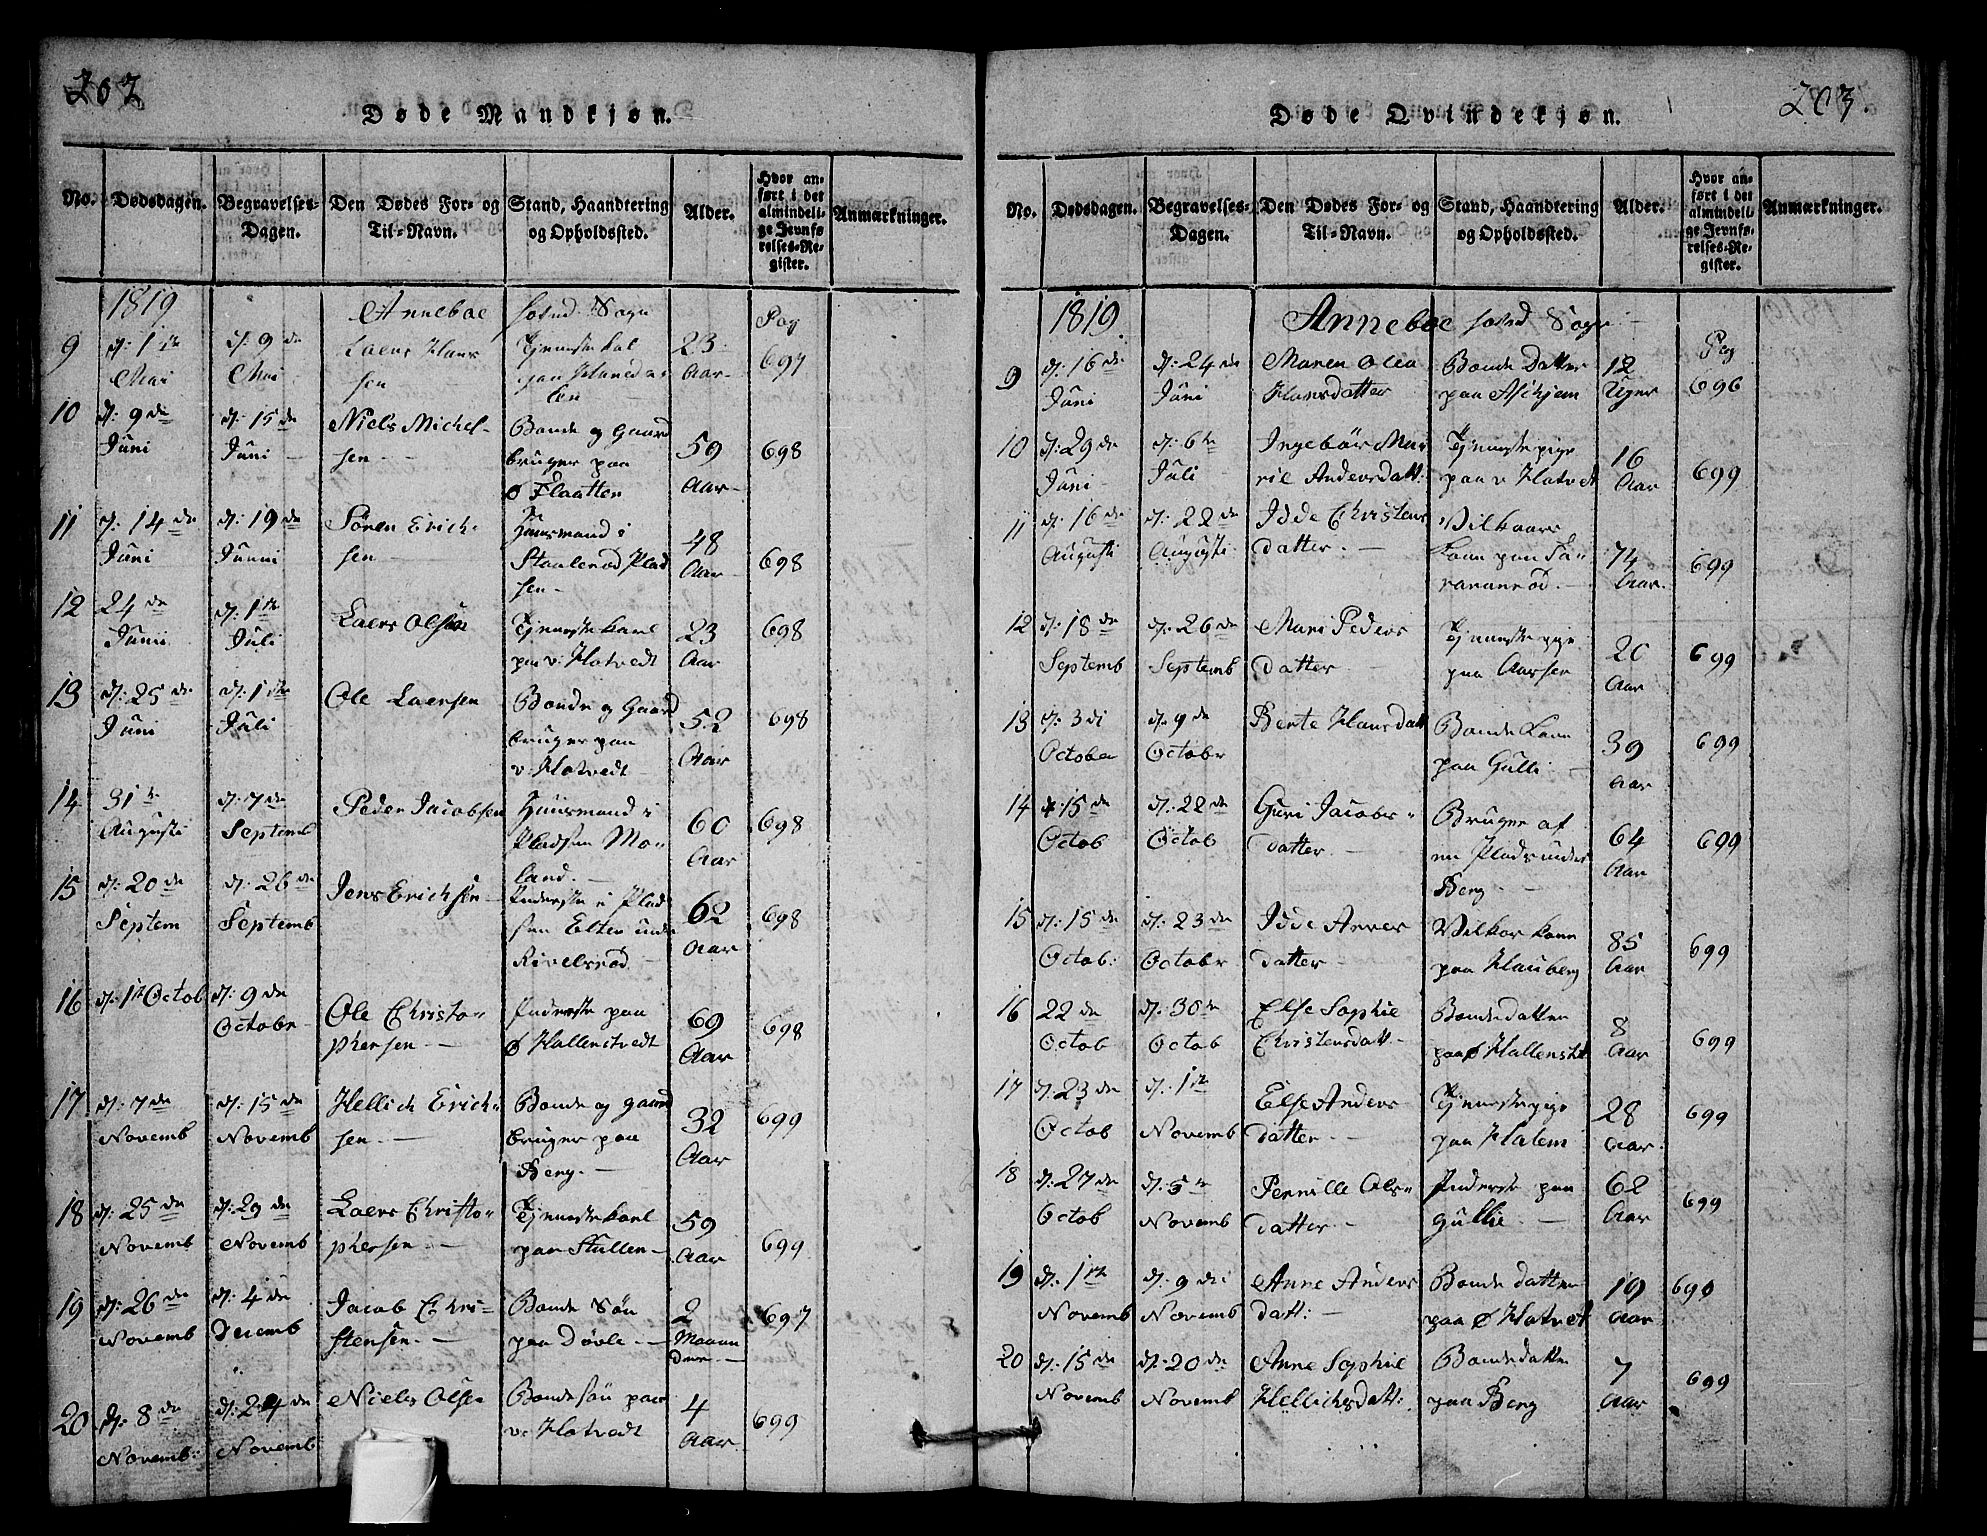 202
Døde Mandkjøn.
No. Dødsdagen. Begravelses-Dagen. Den Dødes For- og Til-Navn. Stand, Haandtering og Opholdssted. Alder. Hvor anført i det almindelige Jevnførelses-Register. Anmærkninger.
1819 Anneboe hoved Sogn Pag
9 d: 1te Mai d: 9de Mai Laers Hansen Tjenestekal paa 23 Aar 697
10 d: 9de Juni d: 15de Juni Niels Michelsen Bonde og Gaardbruger paa ø Flaatten 59 Aar 698
11 d: 14de Juni d: 19de Junni Søren Erichsen Huusmand i Staulerød Pladsen 48 Aar 698
12 24de Junii d: 1te Juli Laers Olsøn Tjenestekarl paa v: Hotvedt 23 Aar 698
13 d: 25de Juni d: 1te Juli Ole Laersen Bonde og Gaardbruger paa v: Hotvedt 52 Aar 698
14 31te Augusti d: 7de Septemb Peder Jacobsen Huusmand i Pladsen Moland. 60 Aar 698
15 d: 20de Septem d: 26de Septemb Jens Erichsen Inderste i Pladsen Elten under Rivelsrød 62 Aar 698
16 d: 1te Octob d: 9de Octobr Ole Christophersen Inderste paa ø Hallenstvedt 69 Aar 698
17 d: 7de Novemb d: 15de Novemb Hellich Erichsen Bonde og gaardbruger paa Berg. 32 Aar 699
18 d: 25de Novemb d: 29de Novemb Laers Christophersen Tjenestekarl paa Stullen 59 Aar 699
19 d: 26de Novemb d: 4de Decemb Jacob Christensen Bonde Søn paa Døvle 2 Maaneder 697
20 d: 8de Novemb: d: 24de Novemb Niels Olsen Bondesøn paa v: Hotvedt 4 Aar 699
203.
Døde Qvindekjøn.
No. Dødsdagen. Begravelses-Dagen. Den Dødes For- og Til-Navn. Stand, Haandtering og Opholdssted. Alder. Hvor anført i det almindelige Jevnførelses-Register. Anmærkninger.
1819 Anneboe hoved Sogn Pag
9 d: 16de Juni d: 24de Juni Maren Olea Hansdatter Bonde Datter paa Askjem 12 Uger 696
10 d: 29de Juni d: 6te Juli Ingebör Maril Andersdatt: Tjenestepige paa v Hotvet 16 Aar 699
11 d: 16de Augusti d: 22de Augusti Idde Christensdatter Vilkaars Kone paa 74 Aar. 699
12 d: 18de Septemb d: 26de Septemb Mari Pedersdatter Tjenestepige paa Aarsen 20 Aar 699
13 d: 3di October d: 9de Octobr Berte Hansdatt Bonde Kone paa Gulli 39 Aar 699
14 15de Octob d: 22de Octob Guri Jacobsdatter Bruger af en Plads under Berg 64 Aar 699
15 d: 15de Octob: d: 23de Octobr Idde Anersdatter Vilkor Kone paa Hauberg 85 Aar 699
16 22de Octob d: 30te Octob Else Sophie Christensdatt Bondedatter paa ø Hallenstvt 8 Aar 699
17 d: 23de Octob d: 1te Novemb Else Andersdatter Tjenestepige paa Halem 28 Aar. 699
18 d: 27de Octob d: 5te Novemb Pernille Olsdatter Inderste paa Gullie. 62 Aar 699
19 d: 1te Novemb d: 9di Novemb Anne Andersdatt: Bonde datter paa ø Hotvet 19 Aar 690
20 d: 15de Novemb d: 20de Novemb Anne Sophie Hellichsdatt: Bondedatter paa Berg 7 Aar 699